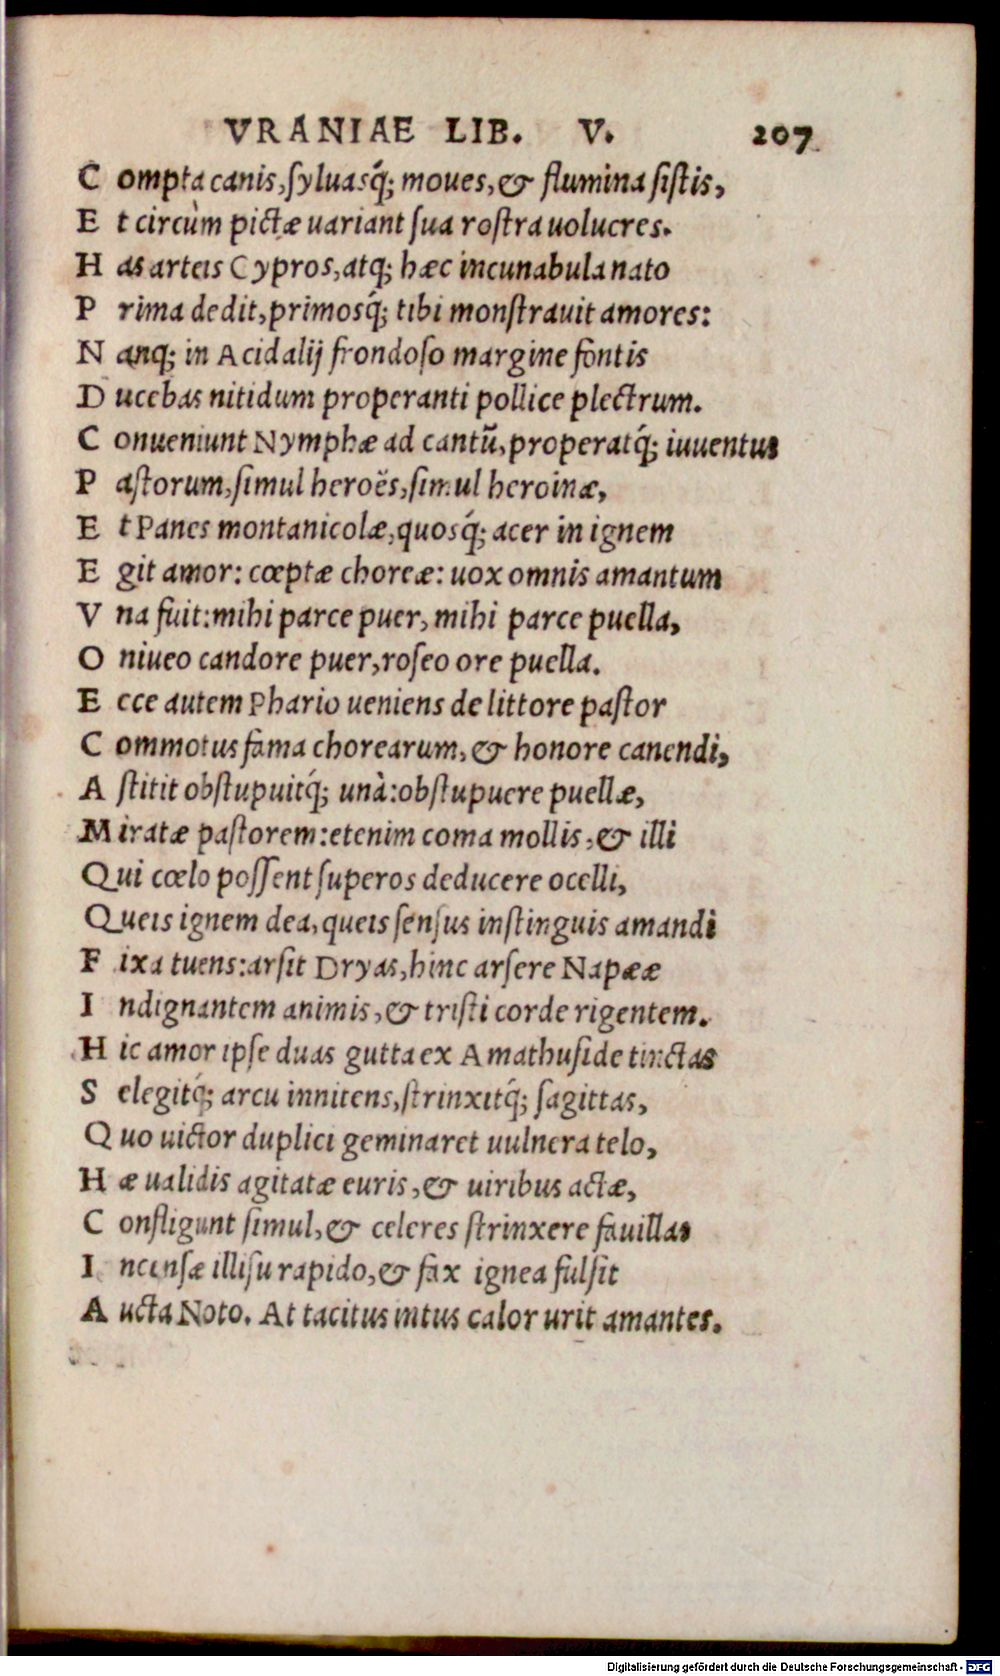 VRANIAE LIB. V. 207
C ompta canis, ſyluasq́; moues, & flumina ſiſtis,
E t circùm pictæ uariant ſua roſtra uolucres.
H as arteis Cypros, atq; hæc incunabula nato
P rima dedit, primosq́; tibi monſtrauit amores:
N anq; in Acidalij frondoſo margine fontis
D ucebas nitidum properanti pollice plectrum.
C onueniunt Nymphæ ad cantũ, properatq́; iuuentus
P aſtorum, ſimul heroës, ſimul heroinæ,
E t Panes montanicolæ, quosq́; acer in ignem
E git amor: cœptæ choreæ: uox omnis amantum
V na fuit: mihi parce puer, mihi parce puella,
O niueo candore puer, roſeo ore puella.
E cce autem Phario ueniens de littore paſtor
C ommotus fama chorearum, & honore canendi,
A ſtitit obſtupuitq́; unà: obſtupuere puellæ,
M iratæ paſtorem: etenim coma mollis, & illi
Q ui cœlo poſſent ſuperos deducere ocelli,
Q ueis ignem dea, queis ſenſus inſtinguis amandi
F ixa tuens: arſit Dryas, hinc arſere Napææ
I ndignantem animis, & triſti corde rigentem.
H ic amor ipſe duas gutta ex Amathuſide tinctas
S elegitq́; arcu innitens, ſtrinxitq́; ſagittas,
Q uo uictor duplici geminaret uulnera telo,
H æ ualidis agitatæ euris, & uiribus actæ,
C onfligunt ſimul, & celeres ſtrinxere fauillas
I ncenſæ illiſu rapido, & fax ignea fulſit
A ucta Noto. At tacitus intus calor urit amantes.
Digitalisierung gefördert durch die Deutsche Forschungsgemeinschaft - DFG